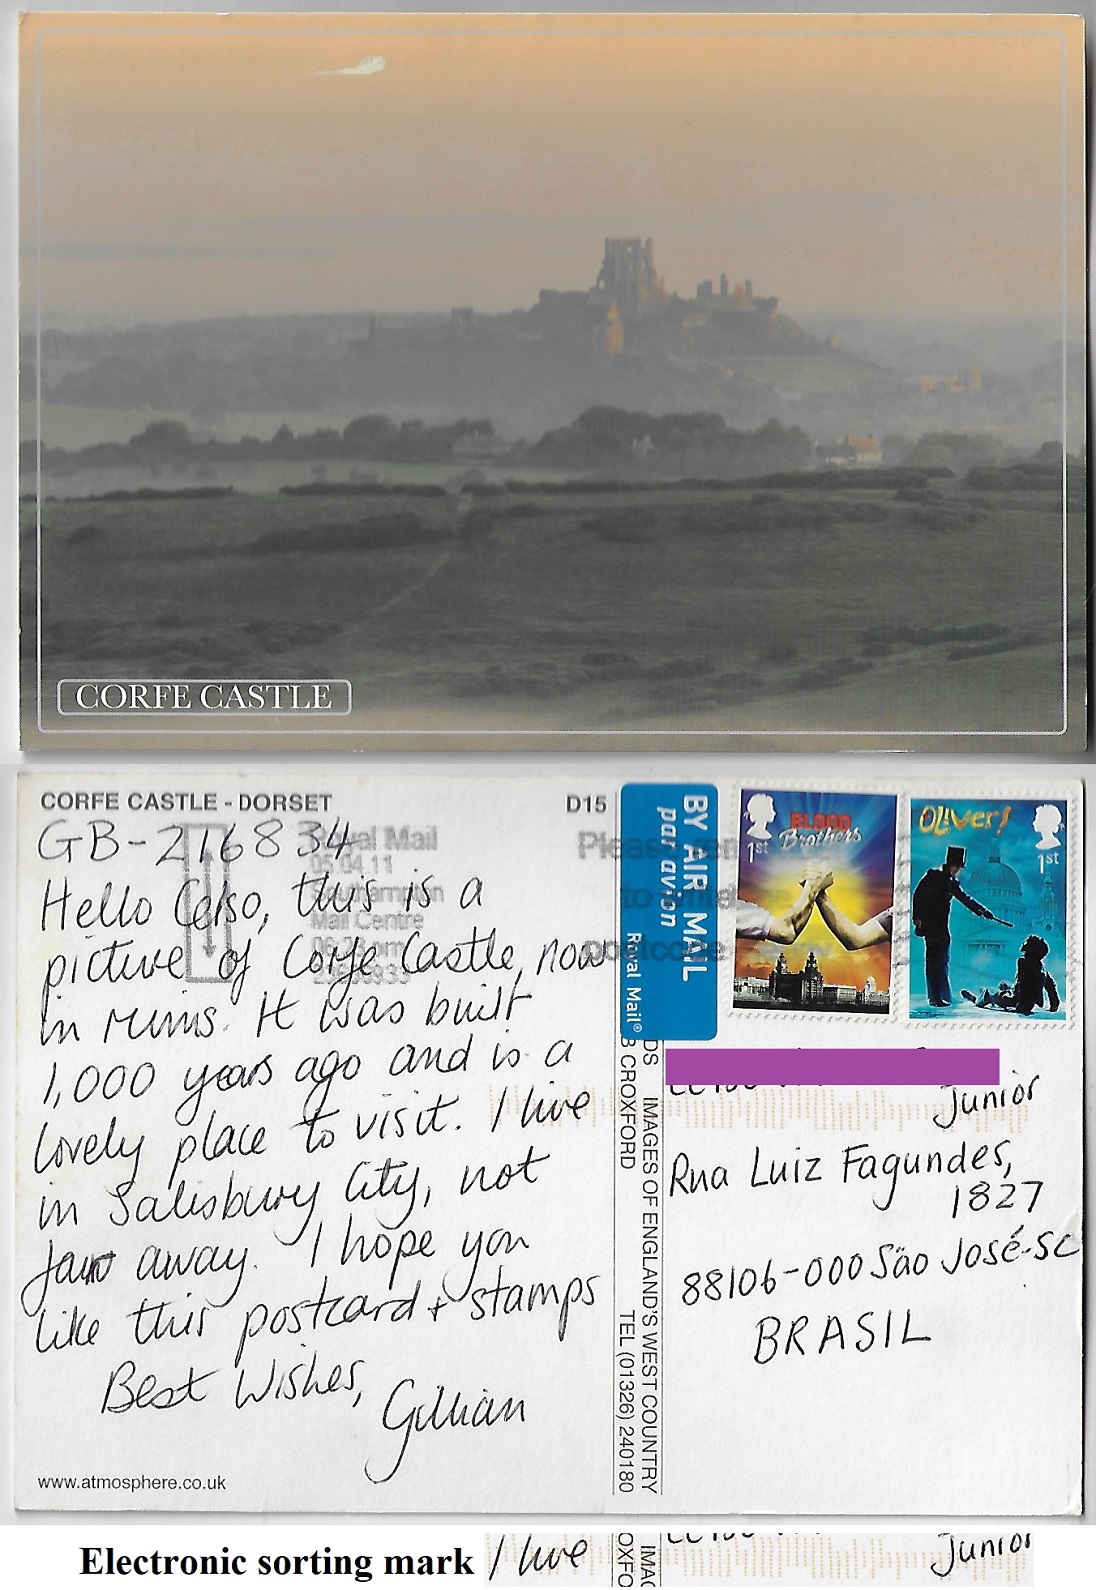 CORFE CASTLE
CORFE CASTLE - DORSET
D15
GB-216834
Royal Mail
05.04.11
Southampton
Mail Centre
Hello Celso, this is a
picture of Corfe Castle, now
in ruins. It was built
1,000 years ago and is a
lovely place to visit. I live
in Salisbury City, not
far away. I hope you
like this postcard + stamps
Best Wishes,
Gillian
www.atmosphere.co.uk
BY AIR MAIL
par avion
Royal Mail®
Please
to
postcode
BLOOD
Brothers
1st
OLiver!
1st
IMAGES OF ENGLAND'S WEST COUNTRY
CROXFORD
TEL (01326) 240180
Junior
Rua Luiz Fagundes,
1827
88106-000 São José-SC
BRASIL
Electronic sorting mark
I live
Junior